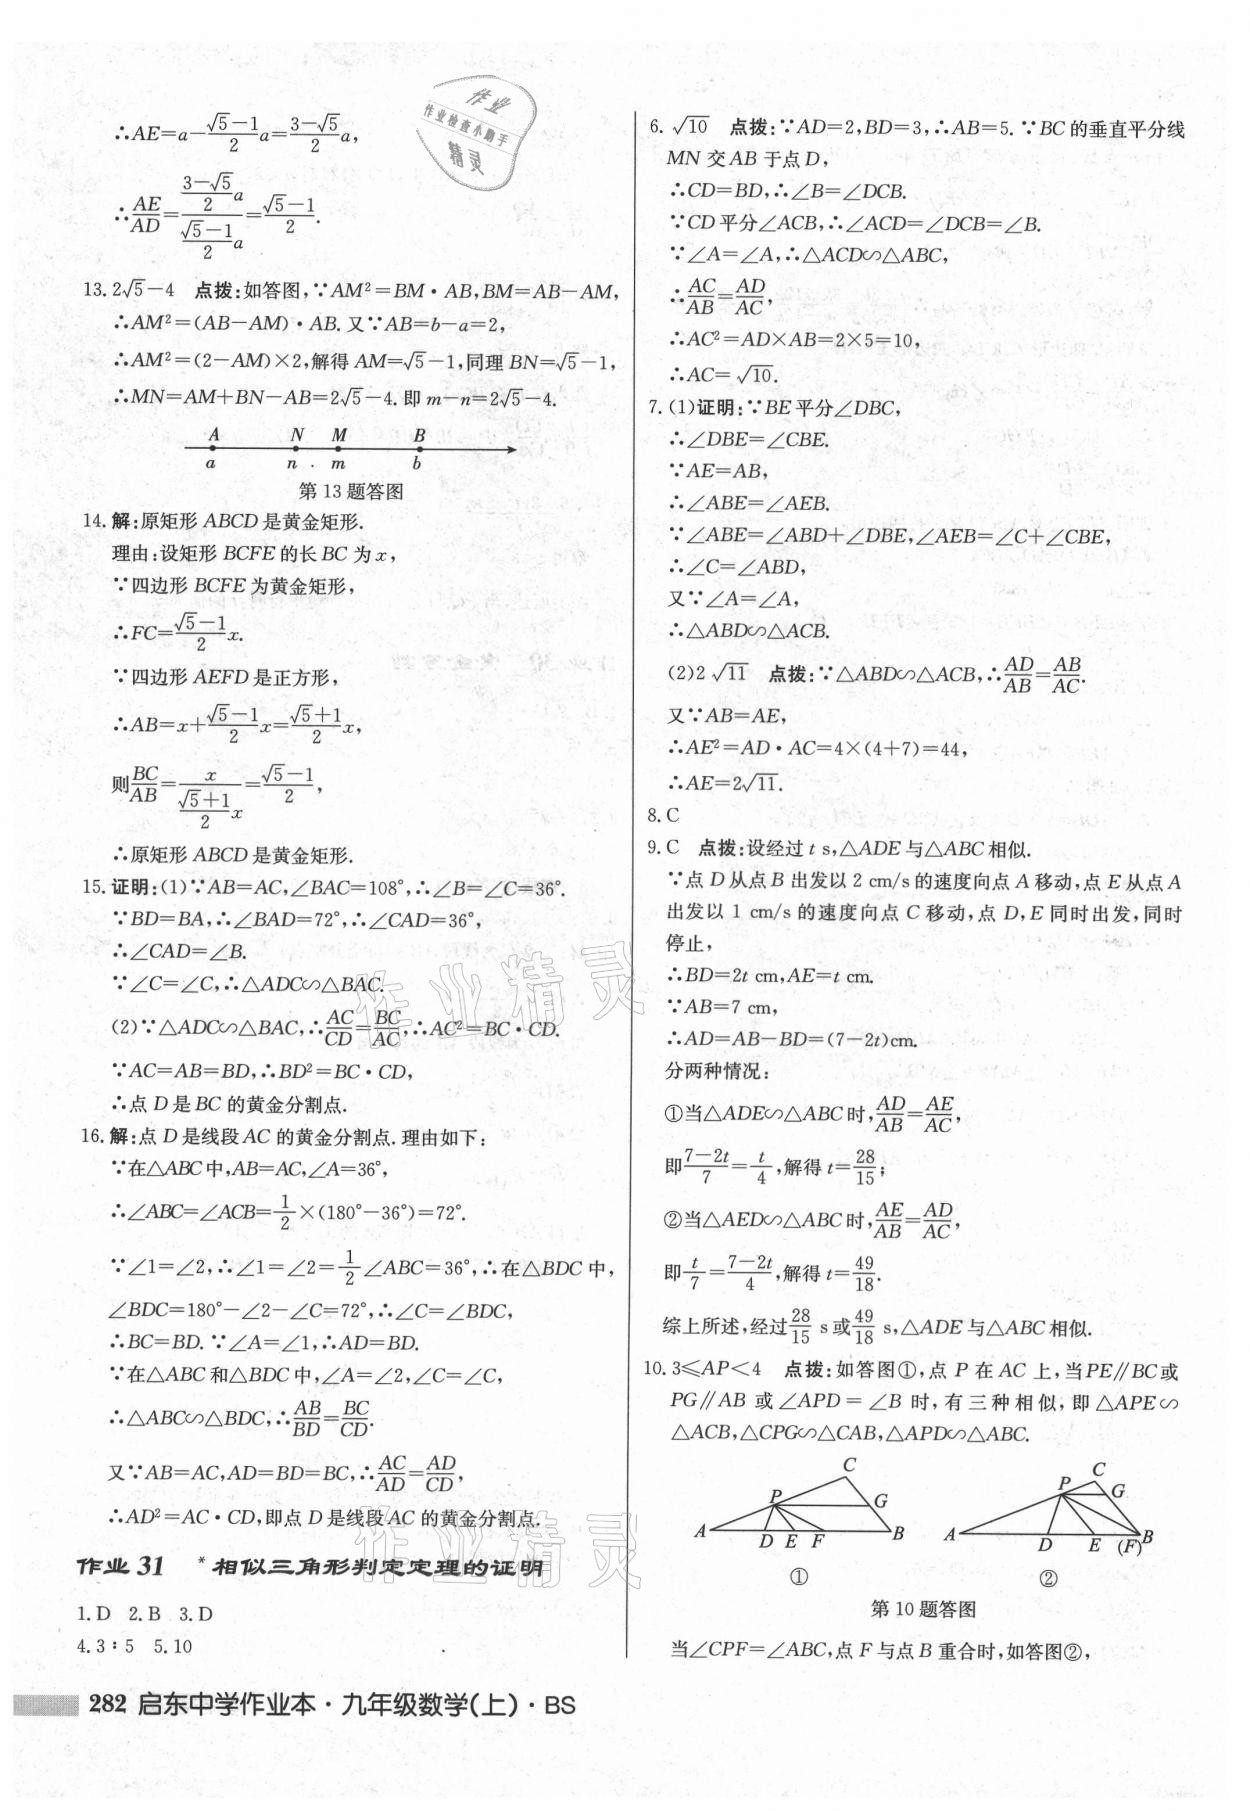 作业
作业检查小助手
精灵
∴AE=a-\frac{√5-1}{2}a=\frac{3-√5}{2}a,
∴\frac{AE}{AD}=\frac{\frac{3-√5}{2}a}{\frac{√5-1}{2}a}=\frac{√5-1}{2}.
13. 2√5-4 点拨:如答图,∵AM²=BM·AB,BM=AB-AM,
∴AM²=(AB-AM)·AB. 又∵AB=b-a=2,
∴AM²=(2-AM)×2,解得 AM=√5-1,同理 BN=√5-1,
∴MN=AM+BN-AB=2√5-4. 即 m-n=2√5-4.
A N M B
a n m b
第 13 题答图
14. 解:原矩形 ABCD 是黄金矩形.
理由:设矩形 BCFE 的长 BC 为 x,
∵四边形 BCFE 为黄金矩形,
∴FC=\frac{√5-1}{2}x.
∵四边形 AEFD 是正方形,
∴AB=x+\frac{√5-1}{2}x=\frac{√5+1}{2}x,
则\frac{BC}{AB}=\frac{x}{\frac{√5+1}{2}x}=\frac{√5-1}{2},
∴原矩形 ABCD 是黄金矩形.
15. 证明:(1)∵AB=AC,∠BAC=108°,∴∠B=∠C=36°.
∵BD=BA,∴∠BAD=72°,∴∠CAD=36°,
∴∠CAD=∠B.
∵∠C=∠C,∴△ADC∽△BAC.
(2)∵△ADC∽△BAC,∴\frac{AC}{CD}=\frac{BC}{AC},∴AC²=BC·CD.
∵AC=AB=BD,∴BD²=BC·CD,
∴点 D 是 BC 的黄金分割点.
16. 解:点 D 是线段 AC 的黄金分割点. 理由如下:
∵在△ABC 中,AB=AC,∠A=36°,
∴∠ABC=∠ACB=\frac{1}{2}×(180°-36°)=72°.
∵∠1=∠2,∴∠1=∠2=\frac{1}{2}∠ABC=36°,∴在△BDC 中,
∠BDC=180°-∠2-∠C=72°,∴∠C=∠BDC,
∴BC=BD. ∵∠A=∠1,∴AD=BD.
∵在△ABC 和△BDC 中,∠A=∠2,∠C=∠C,
∴△ABC∽△BDC,∴\frac{AB}{BD}=\frac{BC}{CD}.
又∵AB=AC,AD=BD=BC,∴\frac{AC}{AD}=\frac{AD}{CD},
∴AD²=AC·CD,即点 D 是线段 AC 的黄金分割点.
作业 31 *相似三角形判定定理的证明
1. D 2. B 3. D
4. 3∶5 5. 10
6. √10 点拨:∵AD=2,BD=3,∴AB=5. ∵BC 的垂直平分线
MN 交 AB 于点 D,
∴CD=BD,∴∠B=∠DCB.
∵CD 平分∠ACB,∴∠ACD=∠DCB=∠B.
∵∠A=∠A,∴△ACD∽△ABC,
∴\frac{AC}{AB}=\frac{AD}{AC},
∴AC²=AD×AB=2×5=10,
∴AC=√10.
7. (1)证明:∵BE 平分∠DBC,
∴∠DBE=∠CBE.
∵AE=AB,
∴∠ABE=∠AEB.
∵∠ABE=∠ABD+∠DBE,∠AEB=∠C+∠CBE,
∴∠C=∠ABD,
又∵∠A=∠A,
∴△ABD∽△ACB.
(2)2√11 点拨:∵△ABD∽△ACB,∴\frac{AD}{AB}=\frac{AB}{AC}.
又∵AB=AE,
∴AE²=AD·AC=4×(4+7)=44,
∴AE=2√11.
8. C
9. C 点拨:设经过 t s,△ADE 与△ABC 相似.
∵点 D 从点 B 出发以 2 cm/s 的速度向点 A 移动,点 E 从点 A
出发以 1 cm/s 的速度向点 C 移动,点 D,E 同时出发,同时
停止,
∴BD=2t cm,AE=t cm.
∵AB=7 cm,
∴AD=AB-BD=(7-2t)cm.
分两种情况:
①当△ADE∽△ABC 时,\frac{AD}{AB}=\frac{AE}{AC},
即\frac{7-2t}{7}=\frac{t}{4},解得 t=\frac{28}{15};
②当△AED∽△ABC 时,\frac{AE}{AB}=\frac{AD}{AC},
即\frac{t}{7}=\frac{7-2t}{4},解得 t=\frac{49}{18}.
综上所述,经过\frac{28}{15} s 或\frac{49}{18} s,△ADE 与△ABC 相似.
10. 3≤AP<4 点拨:如答图①,点 P 在 AC 上,当 PE∥BC 或
PG∥AB 或 ∠APD=∠B 时,有三种相似,即△APE∽
△ACB,△CPG∽△CAB,△APD∽△ABC.
C P G A D E F B
①
C P G A D E B (F)
②
第 10 题答图
当∠CPF=∠ABC,点 F 与点 B 重合时,如答图②,
282 启东中学作业本·九年级数学(上)·BS
作业精灵
作业精灵